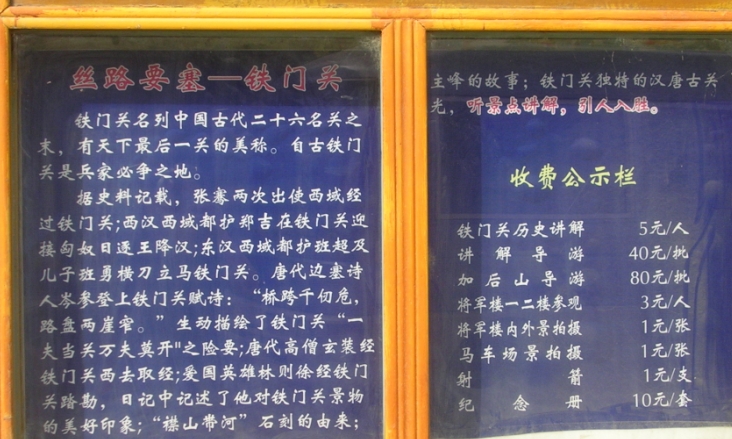 丝路要塞—铁门关
铁门关名列中国古代二十六名关之
末，有天下最后一关的美称。自古铁门
关是兵家必争之地。
据史料记载，张骞两次出使西域经
过铁门关；西汉西域都护郑吉在铁门关迎
接匈奴日逐王降汉；东汉西域都护班超及
儿子班勇横刀立马铁门关。唐代边塞诗
人岑参登上铁门关赋诗：“桥跨千仞危，
路盘两崖窄。”生动描绘了铁门关“一
夫当关万夫莫开"之险要；唐代高僧玄装经
铁门关西去取经；爱国英雄林则徐经铁门
关踏勘，日记中记述了他对铁门关景物
的美好印象；“襟山带河”石刻的由来；
主峰的故事；铁门关独特的汉唐古关
光，听景点讲解，引人入胜。
收费公示栏
铁门关历史讲解 5元/人
讲解导游 40元/批
加后山导游 80元/批
将军楼一二楼参观 3元/人
将军楼内外景拍摄 1元/张
马车场景拍摄 1元/张
射箭 1元/支
纪念册 10元/套